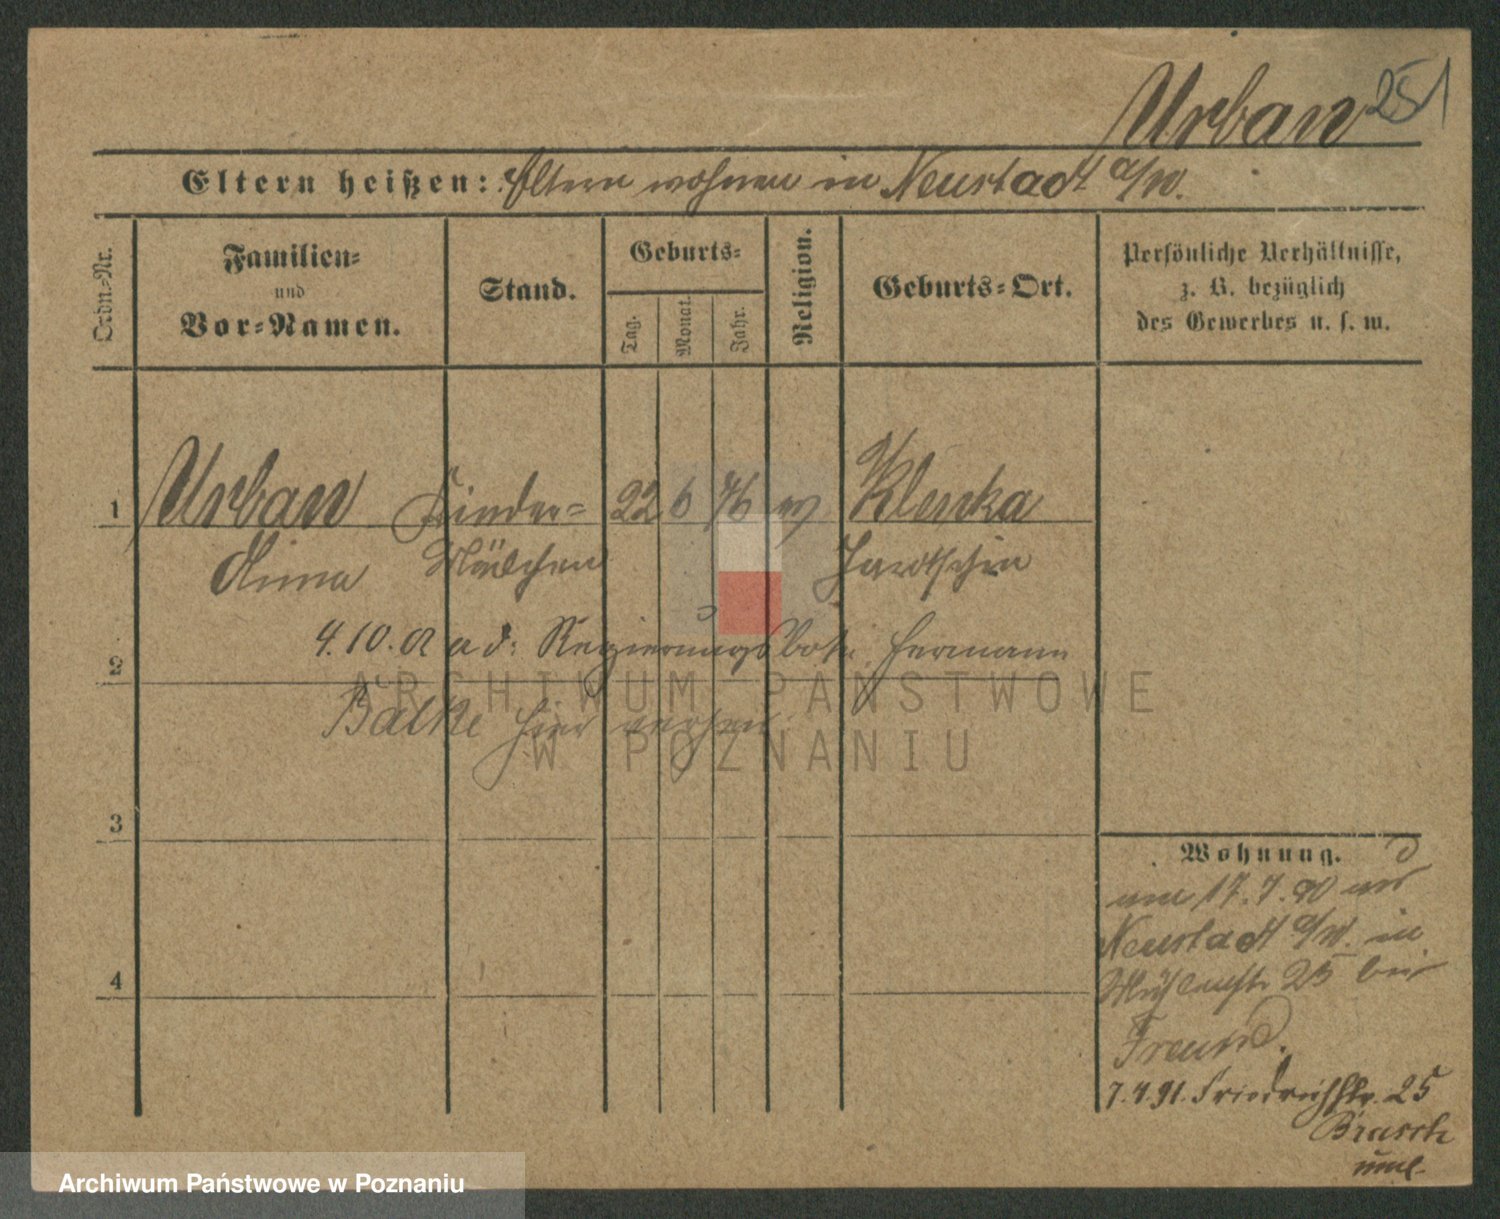 Urban 251
Eltern heißen: Eltern wohnen in Neustadt a/W.
Ordn.-Nr.
Familien-
und
Vor-Namen.
Stand.
Geburts-
Tag.
Monat.
Jahr.
Religion.
Geburts-Ort.
Persönliche Verhältnisse,
z. B. bezüglich
des Gewerbes u. s. w.
1 Urban Kinder= 22 6 76 Klenka
Anna Mädchen Jarotschin
4.10. a d: Regierungsbote Hermann
2
Balke hier
3
Wohnung.
17.7.90
Neustadt a/W. in
4
Mühlenstr 25 bei
Freund.
7.4.91. Friedrichstr. 25
Brasch
ARCHIWUM PAŃSTWOWE
W POZNANIU
Archiwum Państwowe w Poznaniu